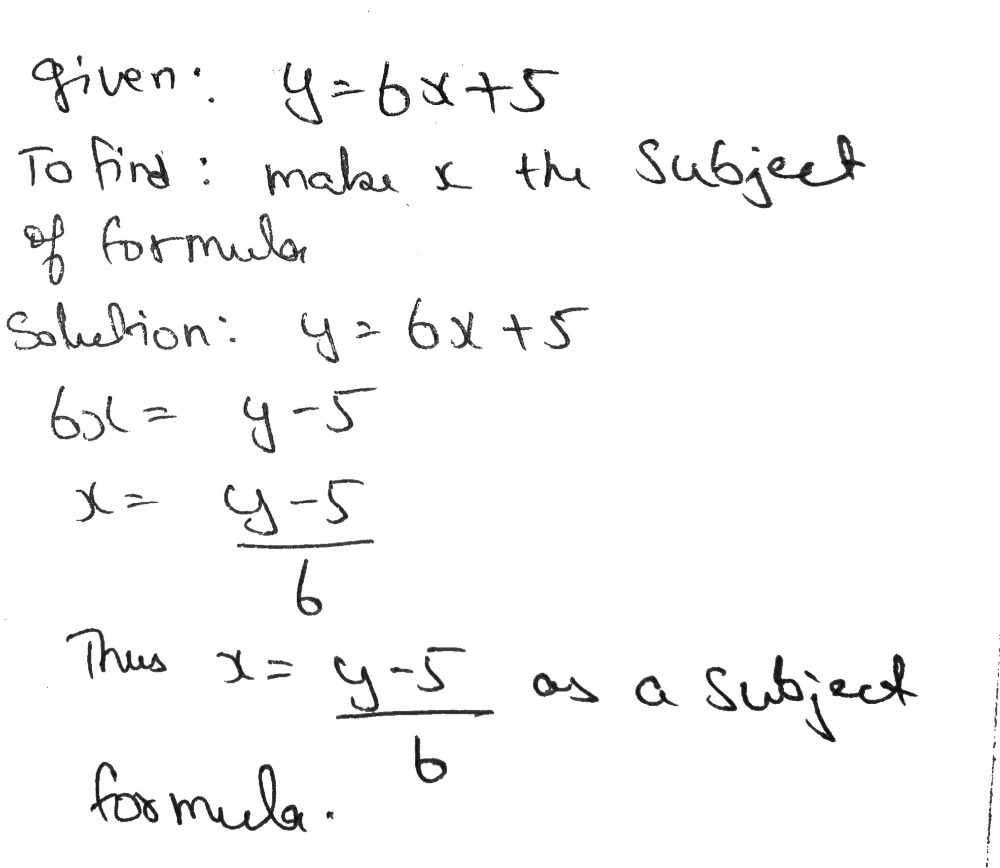 given: y=6x+5
To find: make x the Subject
of formula
Solution: y = 6x+5
6x = y-5
x = y-5
6
Thus x = y-5 as a Subject
6
formula.